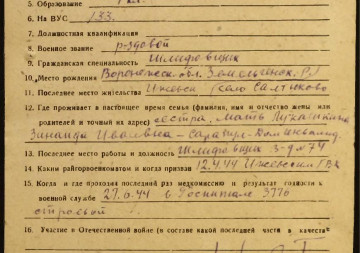 5. Образование
6. На ВУС 133.
7. Должностная квалификация
8. Военное звание рядовой
9. Гражданская специальность Шлифовщик
10. Место рождения Воронежск. обл.
11. Последнее место жительства Ижевск село Салтиково
12. Где проживает в настоящее время семья (фамилия, имя и отчество жены или
родителей и точный их адрес) сестра, мать
Зинаида Ивановна - Сарапул
13. Последнее место работы и должность Шлифовщик 3-д N 74
14. Каким райгорвоенкоматом и когда призван 12.4.44 Ижевским ГВК
15. Когда и где проходил последний раз медкомиссию и результат годности к
военной службе 27.6.44 в Госпитале 3776
строевой
16. Участие в Отечественной войне (в составе какой последней части в качестве